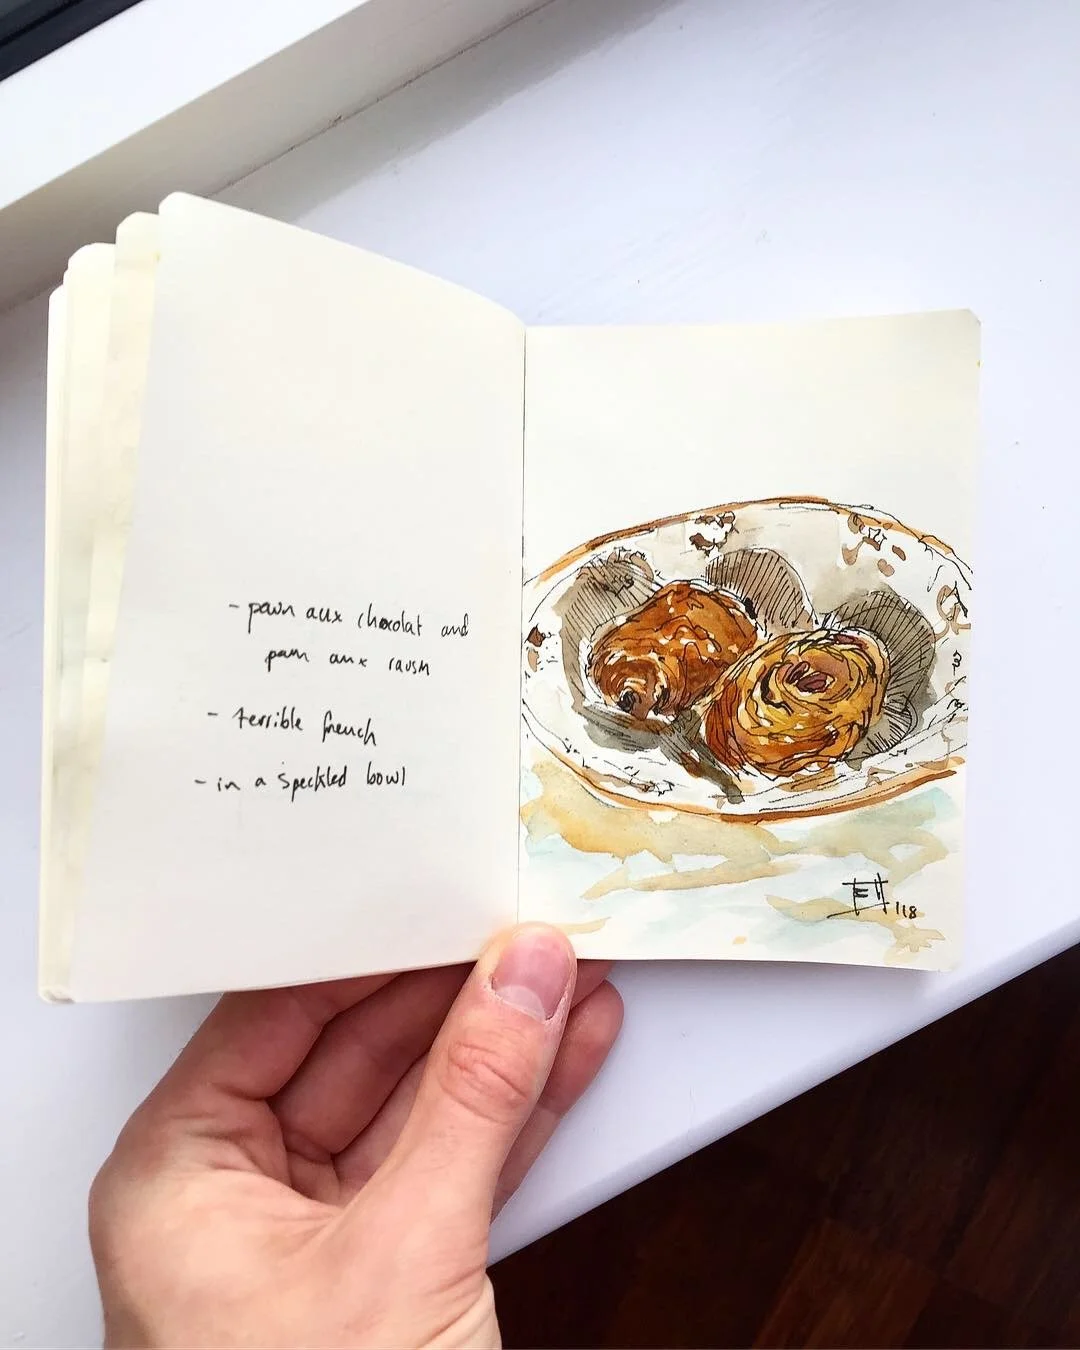 - pain aux chocolat and
pain aux raisin
- terrible french
- in a speckled bowl
EH 118